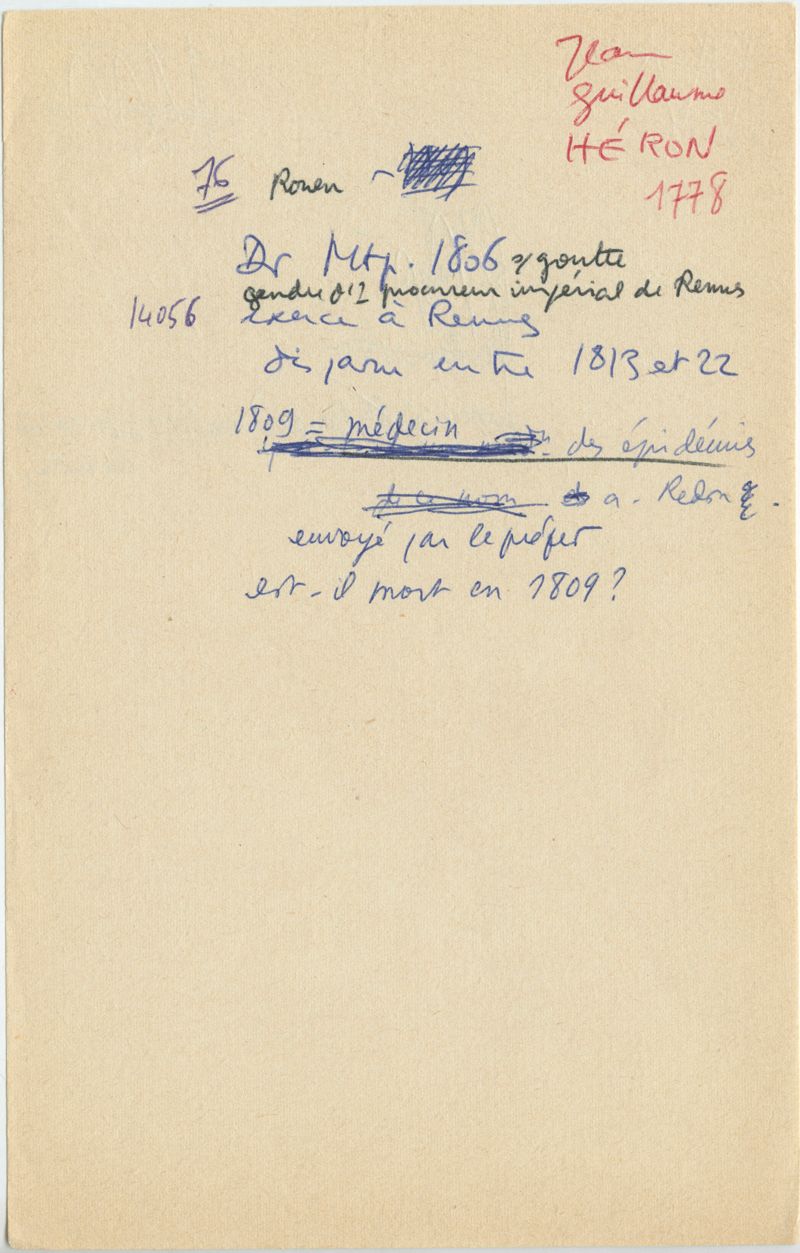 Jean
Guillaume
HÉRON
1778
76 Rouen -
Dr Mtp. 1806 s/goutte
gendre d'1 procureur impérial de Rennes
14056 exerce à Rennes
disparu entre 1813 et 22
1809 = médecin des épidémies
à Redon
envoyé par le préfet
est-il mort en 1809 ?